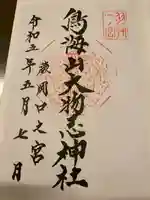 鳥海山大物忌神社
蕨岡口之宮
令和五年五月七日